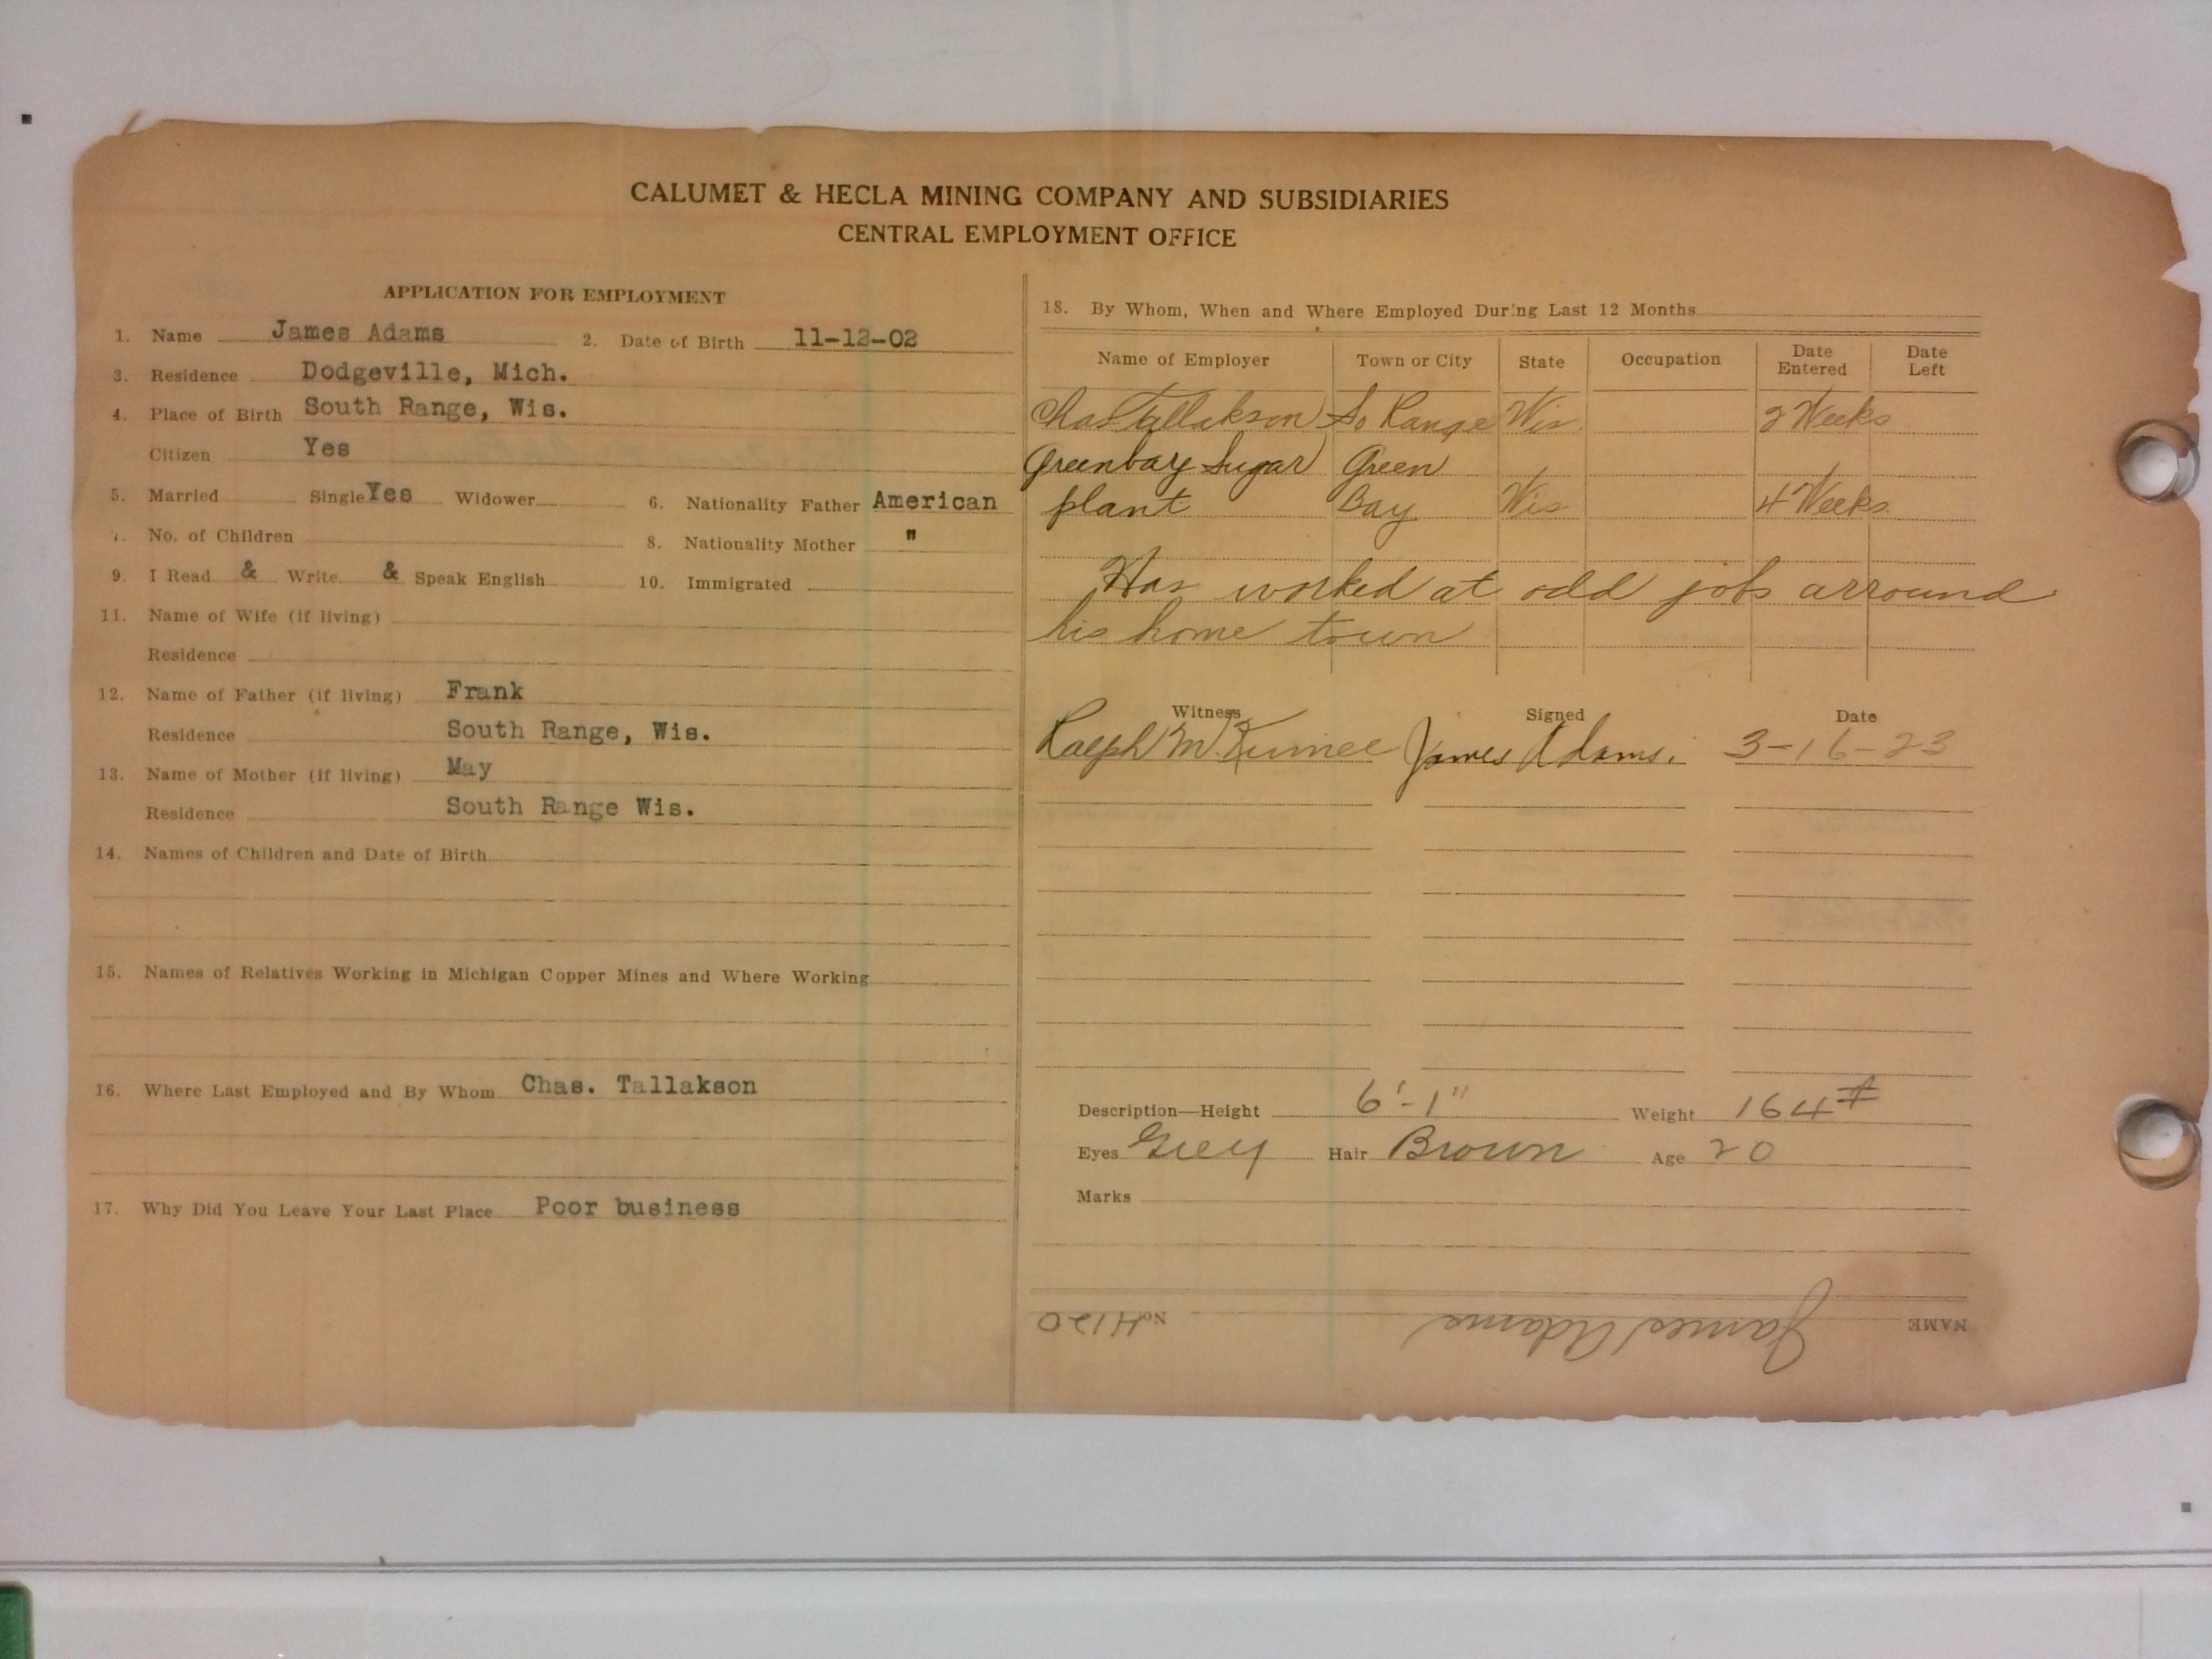 CALUMET & HECLA MINING COMPANY AND SUBSIDIARIES
CENTRAL EMPLOYMENT OFFICE
APPLICATION FOR EMPLOYMENT
1. Name James Adams 2. Date of Birth 11-12-02
3. Residence Dodgeville, Mich.
4. Place of Birth South Range, Wis.
Citizen Yes
5. Married Single Yes Widower 6. Nationality Father American
7. No. of Children 8. Nationality Mother "
9. I Read & Write & Speak English 10. Immigrated
11. Name of Wife (if living)
Residence
12. Name of Father (if living) Frank
Residence South Range, Wis.
13. Name of Mother (if living) May
Residence South Range Wis.
14. Names of Children and Date of Birth
15. Names of Relatives Working in Michigan Copper Mines and Where Working
16. Where Last Employed and By Whom Chas. Tallakson
17. Why Did You Leave Your Last Place Poor business
18. By Whom, When and Where Employed During Last 12 Months
Name of Employer Town or City State Occupation Date Entered Date Left
Chas Tallakson So Range Wis 2 Weeks
Greenbay Sugar Green
plant Bay Wis 4 Weeks
Has worked at odd jobs arround
his home town
Witness Signed Date
Ralph James Adams. 3-16-23
Description—Height 6'-1" Weight 164#
Eyes Grey Hair Brown Age 20
Marks
NAME James Adams No. H120